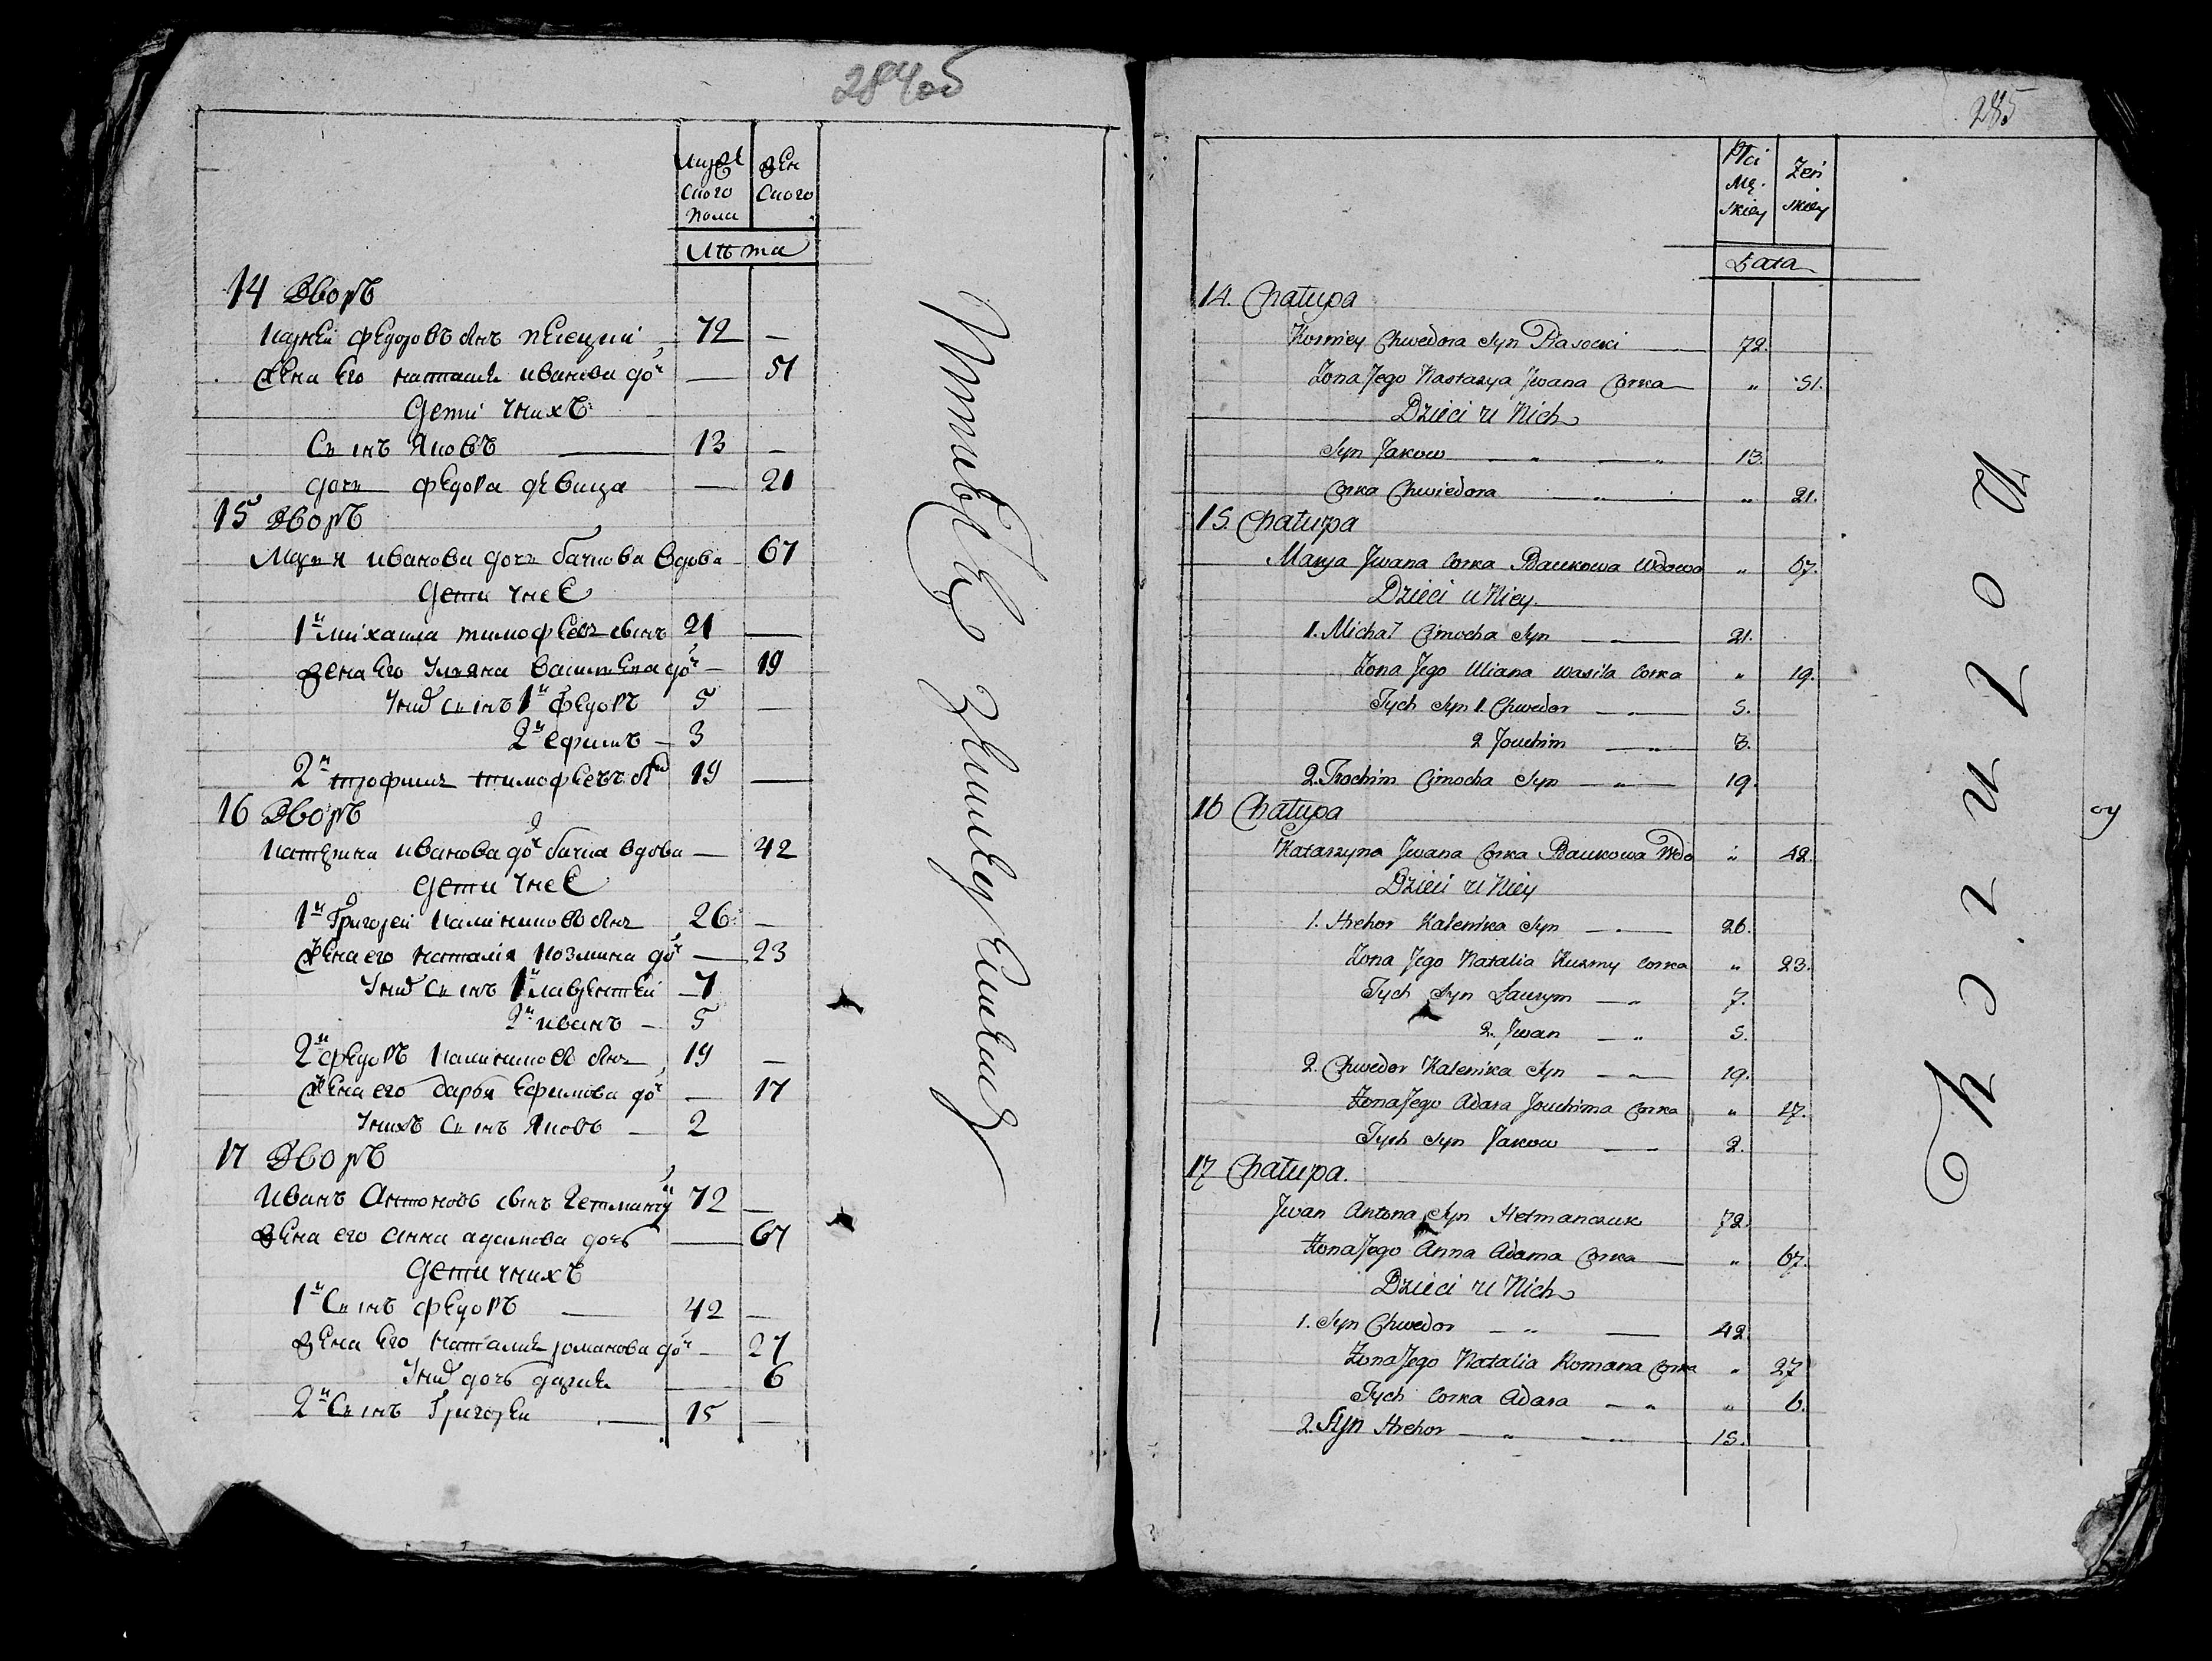 284об
Мужеского пола
Женского
Лѣта
14 Дворъ
Корней Федоровъ сынъ Песецкій 72 —
Жена Его Настасья Иванова доч — 51
Дети у нихъ
Сынъ Яковъ 13 —
дочь Федора девица — 21
15 Дворъ
Марья Иванова дочь бачкова вдова 67
Дети у неѣ
1й Михаила Тимофеевъ сынъ 21 —
Жена Его Ульяна Васильева доч — 19
У них сынъ 1й Федоръ 5 —
2й Ефимъ — 3
2й Трофимъ Тимофеевъ сын 19 —
16 Дворъ
Катерина Иванова доч вдова — 42
Дети у неѣ
1й Григорей сынъ 26 —
Жена его Наталія Козмина доч — 23
У них сынъ 1й Лаврентей — 7
2й Иванъ — 5
2й Федоръ сынъ 19 —
Жена его Дарья Ефимова доч — 17
У нихъ сынъ Яковъ — 2
17 Дворъ
Иванъ Антоновъ сынъ 72 —
Жена его Анна Адамова дочь — 67
Дети у нихъ
1й Сынъ Федоръ — 42 —
Жена Его Наталия Романова доч — 27
У них дочь Дария — 6
2й Сынъ Григорей — 15 —
285
Płci Mę. skiey
Żeń skiey
Lata
14. Chałupa
Korniey Chwedora Syn Piasecki 72.
Żona Jego Nastazya Jwana Corka „ 51.
Dzieci u Nich
Syn Jakow — „ — „ 13.
Corka Chwiedora „ „ 21.
15. Chałupa
Marya Jwana Corka Baczkowa Wdowa „ 67.
Dzieci u Niey.
1. Michał Cimocha Syn — „ — 21.
Żona Jego Uliana Wasila Corka „ 19.
Tych Syn 1. Chwedor — „ — 5.
2 Jouchim — „ 3.
2. Trochim Cimocha Syn — „ — 19.
16 Chałupa
Katarzyna Jwana Corka Baczkowa Wdo „ 42.
Dzieci u Niey
1. Hrehor Kalenika Syn — „ — 26.
Żona Jego Natalia Kuzmy Corka „ 23.
Tych Syn Laurym — „ 7.
2. Jwan — „ 5.
2. Chwedor Kalenika Syn — „ — 19.
Żona Jego Adara Jouchima Corka „ 17.
Tych Syn Jakow — „ 2.
17 Chałupa.
Jwan Antona Syn Hetmanczuk 72.
Żona Jego Anna Adama Corka — „ 67.
Dzieci u Nich
1. Syn Chwedor — „ — 42.
Żona Jego Natalia Romana Corka „ 27
Tych Corka Adara — „ „ 6.
2. Syn Hrehor — „ — „ 15.